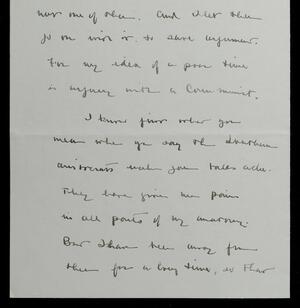 not one of them. And I let them
go on with it to save argument.
For my idea of a poor time
is arguing with a Communist.
I know just what you
mean when you say the Southern
aristocrats make your tail ache.
They have given me pain
in all parts of my anatomy.
But I have been away from
them for a long time, so that